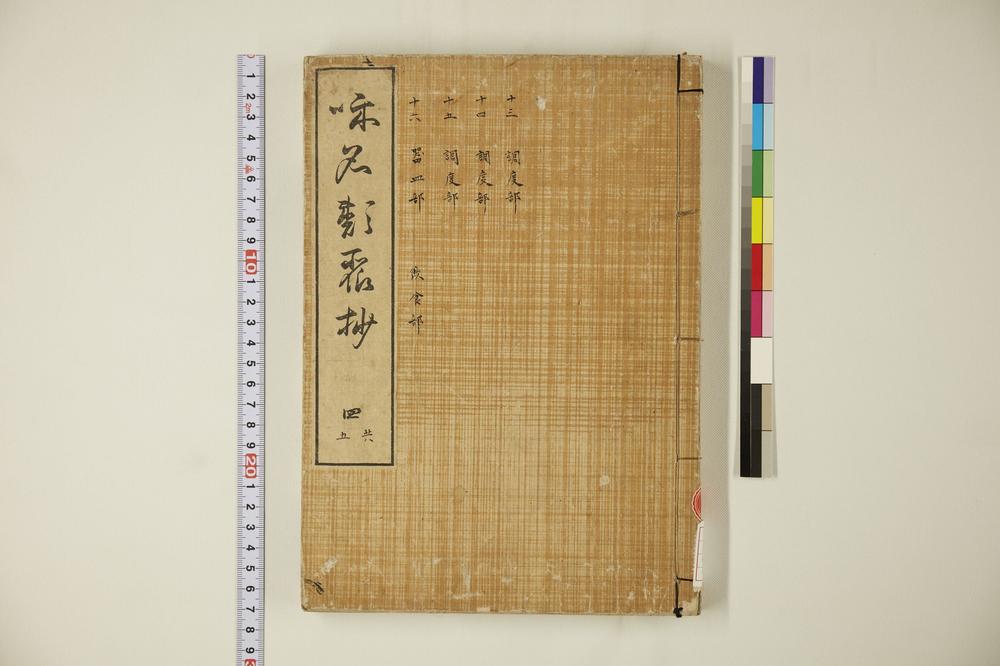 十三 調度部
十四 調度部
十五 調度部
十六 器皿部 飲食部
和名類聚抄
四
共
五
1 2 3 4 5 6 7 8 9 10 1 2 3 4 5 6 7 8 9 20 1 2 3 4 5 6 7 8 9